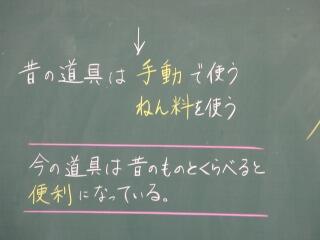 昔の道具は手動で使う
ねん料を使う
今の道具は昔のものとくらべると
便利になっている。